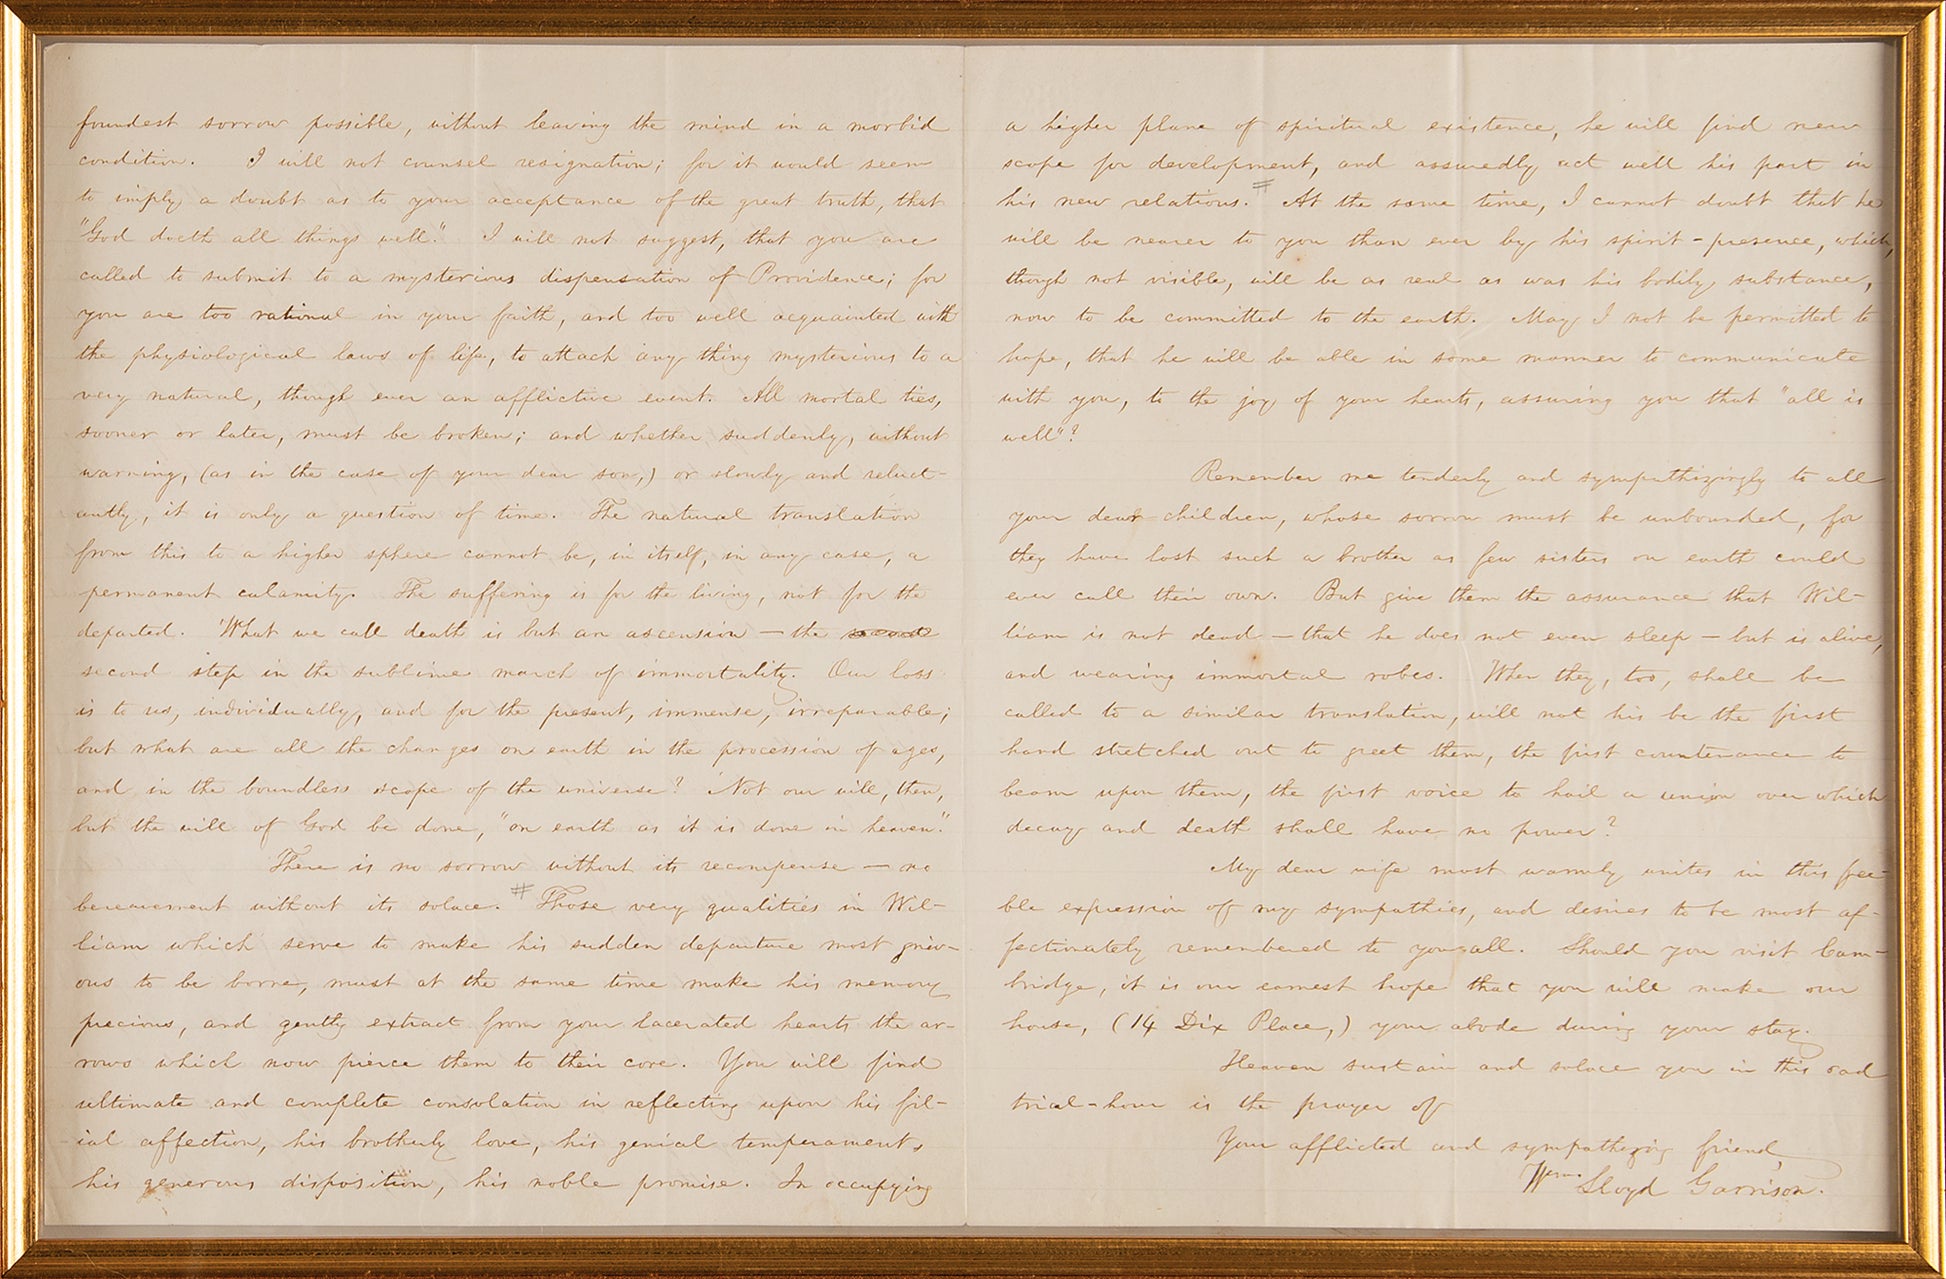 foundest sorrow possible, without leaving the mind in a morbid
condition. I will not counsel resignation; for it would seem
to imply a doubt as to your acceptance of the great truth, that
"God doeth all things well." I will not suggest, that you are
called to submit to a mysterious dispensation of Providence; for
you are too rational in your faith, and too well acquainted with
the physiological laws of life, to attach any thing mysterious to a
very natural, though ever an afflictive event. All mortal ties,
sooner or later, must be broken; and whether suddenly, without
warning, (as in the case of your dear son,) or slowly and reluct-
antly, it is only a question of time. The natural translation
from this to a higher sphere cannot be, in itself, in any case, a
permanent calamity. The suffering is for the living, not for the
departed. What we call death is but an ascension — the
second step in the sublime march of immortality. Our loss
is to us, individually, and for the present, immense, irreparable;
but what are all the changes on earth in the procession of ages,
and in the boundless scope of the universe? Not our will, then,
but the will of God be done, "on earth as it is done in heaven."
There is no sorrow without its recompense — no
bereavement without its solace. # Those very qualities in Wil-
liam which serve to make his sudden departure most griev-
ous to be borne, must at the same time make his memory
precious, and gently extract from your lacerated hearts the ar-
rows which now pierce them to their core. You will find
ultimate and complete consolation in reflecting upon his fil-
ial affection, his brotherly love, his genial temperament,
his generous disposition, his noble promise. In occupying
a higher plane of spiritual existence, he will find new
scope for development, and assuredly act well his part in
his new relations. # At the same time, I cannot doubt that he
will be nearer to you than ever by his spirit-presence, which,
though not visible, will be as real as was his bodily substance,
now to be committed to the earth. May I not be permitted to
hope, that he will be able in some manner to communicate
with you, to the joy of your hearts, assuring you that "all is
well"?
Remember me tenderly and sympathizingly to all
your dear children, whose sorrow must be unbounded, for
they have lost such a brother as few sisters on earth could
ever call their own. But give them the assurance that Wil-
liam is not dead — that he does not even sleep — but is alive,
and wearing immortal robes. When they, too, shall be
called to a similar translation, will not his be the first
hand stretched out to greet them, the first countenance to
beam upon them, the first voice to hail a union over which
decay and death shall have no power?
My dear wife most warmly unites in this fee-
ble expression of my sympathies, and desires to be most af-
fectionately remembered to you all. Should you visit Cam-
bridge, it is our earnest hope that you will make our
house, (14 Dix Place,) your abode during your stay.
Heaven sustain and solace you in this sad
trial-hour is the prayer of
Your afflicted and sympathizing friend,
Wm. Lloyd Garrison.